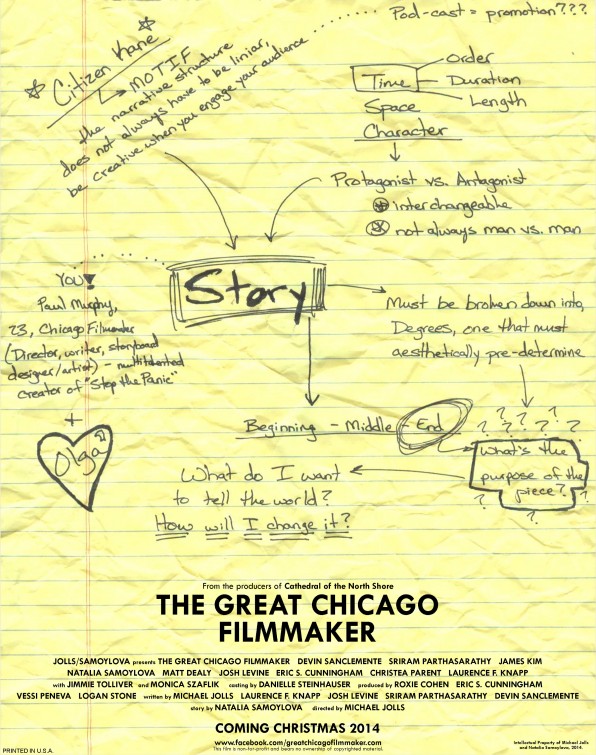 Pod-cast = promotion???
Citizen Kane
MOTIF
the narrative structure
does not always have to be liniar,
be creative when you engage your audience
Order
Time
Duration
Length
Space
Character
Protagonist vs. Antagonist
interchangeable
not always man vs. man
Story
YOU
Paul Murphy,
23, Chicago Filmmaker
(Director, writer, storyboard
designer/artist) - multitalented
creator of "Stop the Panic"
+
Olga
Must be broken down into,
Degrees, one that must
aesthetically pre-determine
Beginning - Middle - End
? ? ? ? ? ? ? ?
What's the
purpose of the
piece?
? ? ?
What do I want
to tell the world?
How will I change it?
From the producers of Cathedral of the North Shore
THE GREAT CHICAGO
FILMMAKER
JOLLS/SAMOYLOVA presents THE GREAT CHICAGO FILMMAKER DEVIN SANCLEMENTE SRIRAM PARTHASARATHY JAMES KIM
NATALIA SAMOYLOVA MATT DEALY JOSH LEVINE ERIC S. CUNNINGHAM CHRISTEA PARENT LAURENCE F. KNAPP
with JIMMIE TOLLIVER and MONICA SZAFLIK casting by DANIELLE STEINHAUSER produced by ROXIE COHEN ERIC S. CUNNINGHAM
VESSI PENEVA LOGAN STONE written by MICHAEL JOLLS LAURENCE F. KNAPP JOSH LEVINE SRIRAM PARTHASARATHY DEVIN SANCLEMENTE
story by NATALIA SAMOYLOVA directed by MICHAEL JOLLS
COMING CHRISTMAS 2014
www.facebook.com/greatchicagofilmmaker.com
This film is non-for-profit and bears no ownership of copyrighted material.
PRINTED IN U.S.A.
Intellectual Property of Michael Jolls
and Natalia Samoylova, 2014.